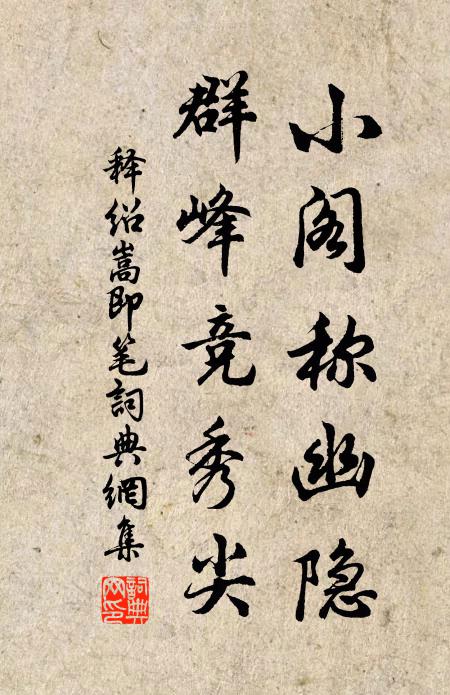 小阁称幽隐
群峰竞秀尖
释绍嵩即笔詞典網集
詞典网印